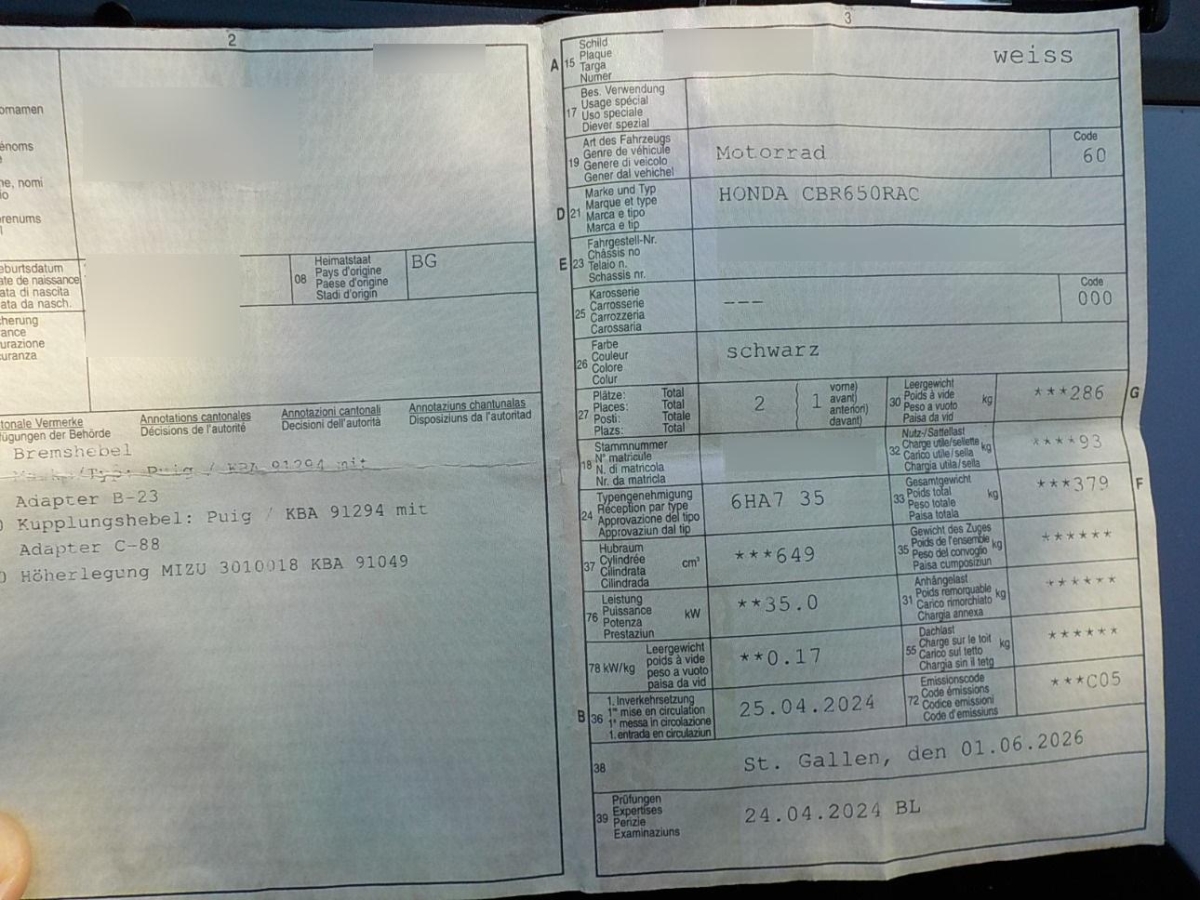 2
omamen
énoms
e
ne, nomi
io
renums
l
eburtsdatum
ate de naissance
ata di nascita
ata da nasch.
08
Heimatstaat
Pays d'origine
Paese d'origine
Stadi d'origin
BG
cherung
rance
urazione
curanza
tonale Vermerke
fügungen der Behörde
Annotations cantonales
Décisions de l'autorité
Annotazioni cantonali
Decisioni dell'autorità
Annotaziuns chantunalas
Disposiziuns da l'autoritad
Bremshebel
Marke/Typ: Puig / KBA 91294 mit
Adapter B-23
) Kupplungshebel: Puig / KBA 91294 mit
Adapter C-88
) Höherlegung MIZU 3010018 KBA 91049
3
A
15
Schild
Plaque
Targa
Numer
weiss
17
Bes. Verwendung
Usage spécial
Uso speciale
Diever spezial
19
Art des Fahrzeugs
Genre de véhicule
Genere di veicolo
Gener dal vehichel
Motorrad
Code
60
D
21
Marke und Typ
Marque et type
Marca e tipo
Marca e tip
HONDA CBR650RAC
E
23
Fahrgestell-Nr.
Châssis no
Telaio n.
Schassis nr.
25
Karosserie
Carrosserie
Carrozzeria
Carossaria
---
Code
000
26
Farbe
Couleur
Colore
Colur
schwarz
27
Plätze: Total
Places: Total
Posti: Totale
Plazs: Total
2
1
vorne)
avant)
anteriori)
davant)
30
Leergewicht
Poids à vide
Peso a vuoto
Paisa da vid
kg
***286
G
18
Stammnummer
N° matricule
N. di matricola
Nr. da matricla
32
Nutz-/Sattellast
Charge utile/sellette
Carico utile/sella
Chargia utila/sella
kg
****93
24
Typengenehmigung
Réception par type
Approvazione del tipo
Approvaziun dal tip
6HA7 35
33
Gesamtgewicht
Poids total
Peso totale
Paisa totala
kg
***379
F
37
Hubraum
Cylindrée
Cilindrata
Cilindrada
cm³
***649
35
Gewicht des Zuges
Poids de l'ensemble
Peso del convoglio
Paisa cumposiziun
kg
******
76
Leistung
Puissance
Potenza
Prestaziun
kW
**35.0
31
Anhängelast
Poids remorquable
Carico rimorchiato
Chargia annexa
kg
******
78 kW/kg
Leergewicht
poids à vide
peso a vuoto
paisa da vid
**0.17
55
Dachlast
Charge sur le toit
Carico sul tetto
Chargia sin il tetg
kg
******
B
36
1. Inverkehrsetzung
1re mise en circulation
1a messa in circolazione
1. entrada en circulaziun
25.04.2024
72
Emissionscode
Code émissions
Codice emissioni
Code d'emissiuns
***C05
38
St. Gallen, den 01.06.2026
39
Prüfungen
Expertises
Perizie
Examinaziuns
24.04.2024 BL